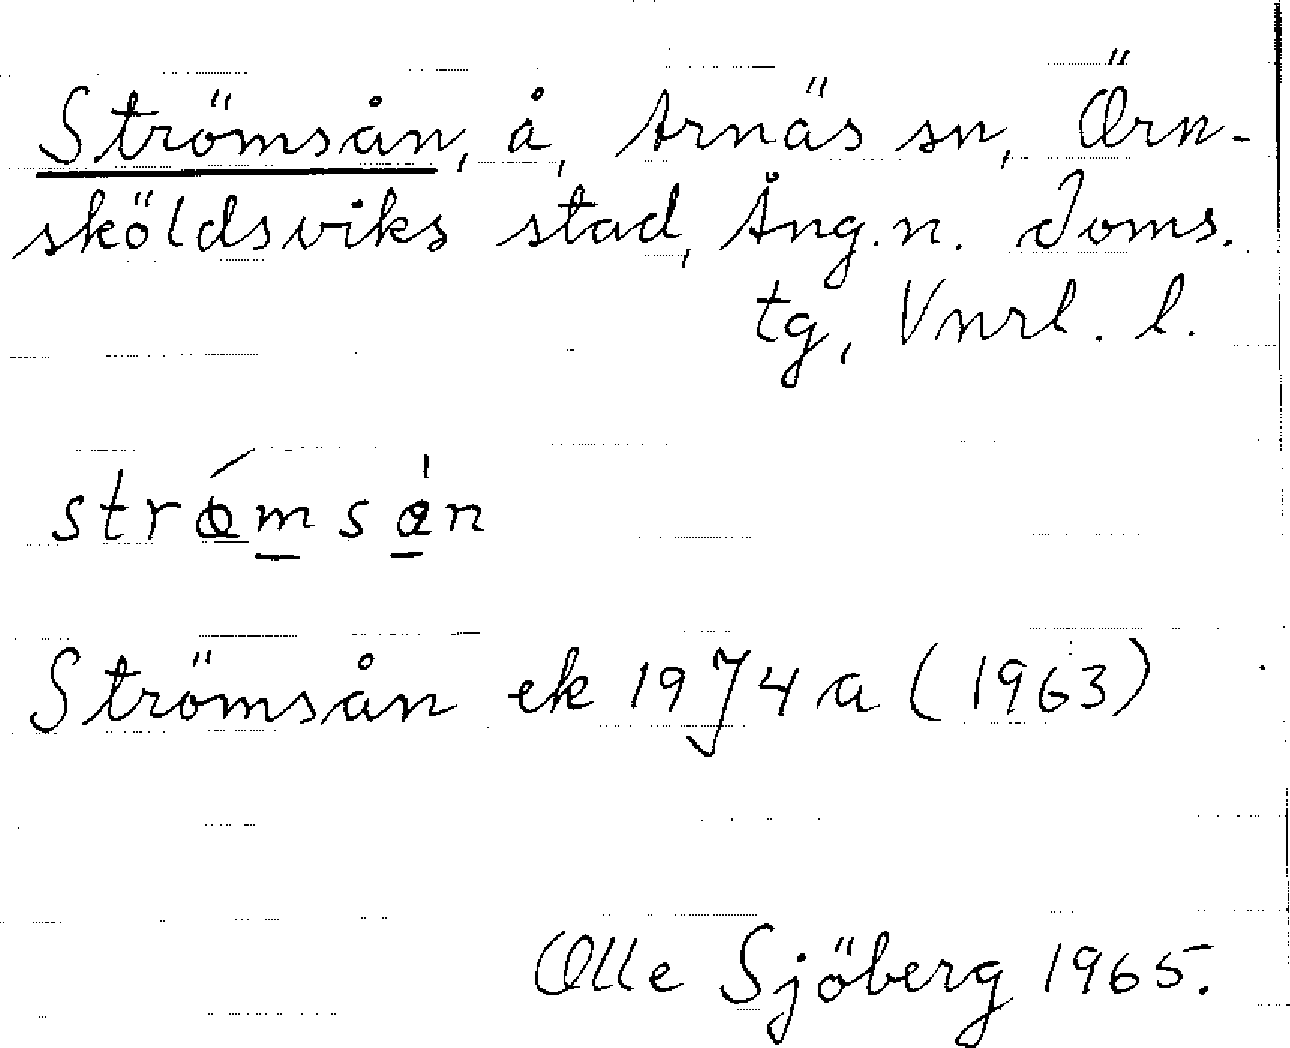 Strömsån, å, Arnäs sn, Örn-
sköldsviks stad, Ång.n. Doms.
tg, Vnrl. l.
Strömsån ek 19 J 4 a (1963)
Olle Sjöberg 1965.